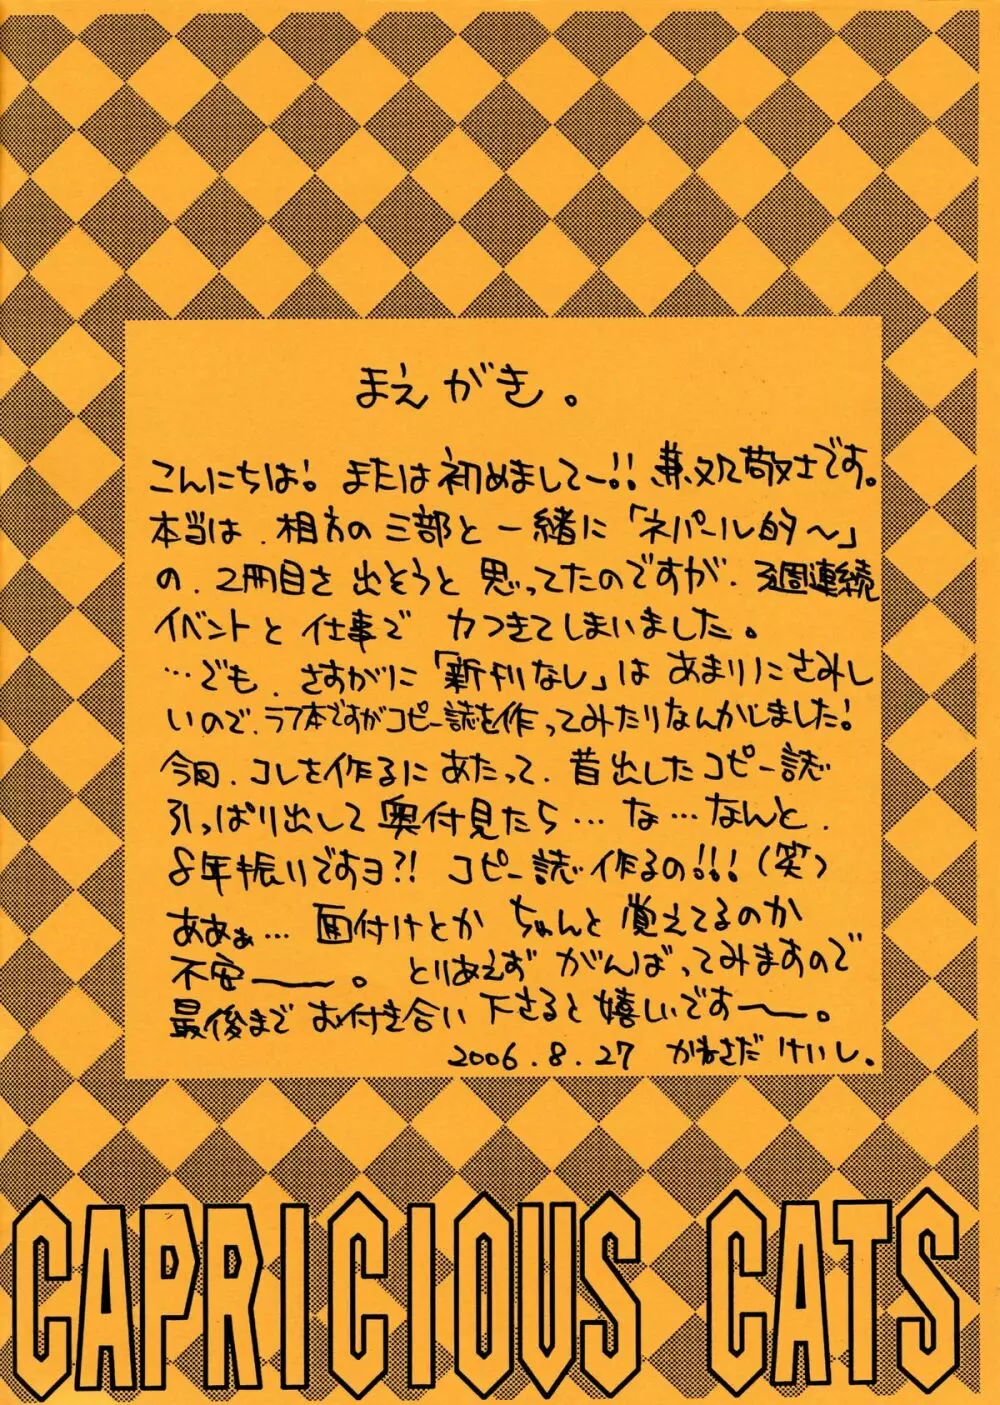 まえがき。
こんにちは! または初めまして〜!! 兼処敬士です。
本当は、相方の三部と一緒に「ネパール的〜」
の、2冊目を出そうと思ってたのですが、3週連続
イベントと仕事で力つきてしまいました。
…でも、さすがに「新刊なし」はあまりにさみし
いので、ラフ本ですがコピー誌を作ってみたりなんかしました!
今回、コレを作るにあたって、昔出したコピー誌
引っぱり出して奥付見たら…な…なんと、
8年振りですヨ?! コピー誌作るの!!!(笑)
ああぁ…面付けとかちゃんと覚えてるのか
不安――。とりあえずがんばってみますので
最後までお付き合い下さると嬉しいです〜。
2006.8.27 かねさだけいし。
CAPRICIOUS CATS